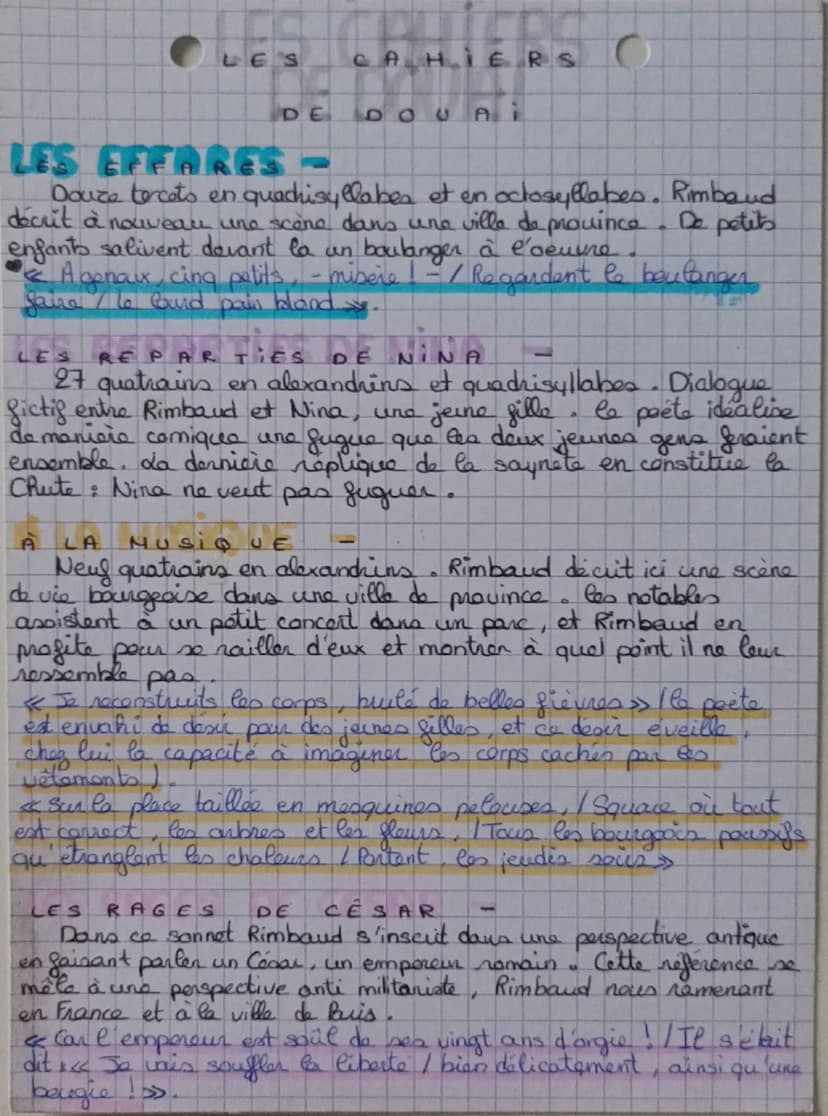 LES CAHIERS
DE DOUAI
LES EFFARES -
Douze tercets en quadrisyllabes et en octosyllabes. Rimbaud
décrit à nouveau une scène dans une ville de province. De petits
enfants salivent devant la un boulanger à l'oeuvre.
« A genoux, cinq petits, - misère ! - / Regardent le boulanger
faire / le lourd pain blond ».
LES REPARTIES DE NINA -
27 quatrains en alexandrins et quadrisyllabes. Dialogue
fictif entre Rimbaud et Nina, une jeune fille. le poète idéalise
de manière comique une fugue que les deux jeunes gens feraient
ensemble. La dernière réplique de la saynète en constitue la
Chute : Nina ne veut pas fuguer.
À LA MUSIQUE -
Neuf quatrains en alexandrins. Rimbaud décrit ici une scène
de vie bourgeoise dans une ville de province. les notables
assistent à un petit concert dans un parc, et Rimbaud en
profite pour se railler d'eux et montrer à quel point il ne leur
ressemble pas.
« Je reconstruits les corps, brulé de belles fièvres » (le poète
est envahi de désir pour des jeunes filles, et ce désir éveille,
chez lui la capacité à imaginer les corps cachés par les
vêtements).
« Sur la place taillée en mesquines pelouses, / Square où tout
est correct, les arbres et les fleurs, / Tous les bourgeois poussifs
qu'étranglent les chaleurs / Portent, les jeudis soirs »
LES RAGES DE CÉSAR -
Dans ce sonnet Rimbaud s'inscrit dans une perspective antique
en faisant parler un César, un empereur romain. Cette référence se
mêle à une perspective anti militariste, Rimbaud nous ramenant
en France et à la ville de Paris.
« Car l'empereur est soûl de ses vingt ans d'orgie ! / Il s'était
dit : « Je vais souffler la liberté / bien délicatement, ainsi qu'une
bougie ! ».